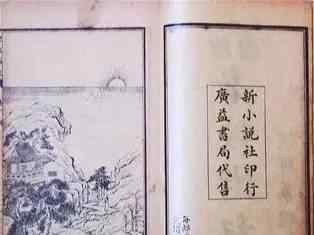 新小說社印行
廣益書局代售